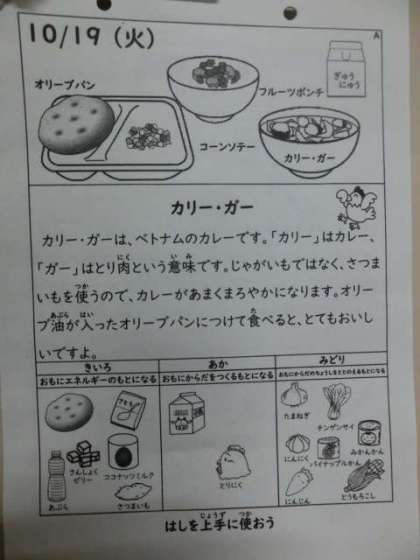 10/19（火）
A
オリーブパン
フルーツポンチ
ぎゅう
にゅう
コーンソテー
カリー・ガー
カリー・ガー
カリー・ガーは、ベトナムのカレーです。「カリー」はカレー、
「ガー」はとり肉という意味です。じゃがいもではなく、さつま
いもを使うので、カレーがあまくまろやかになります。オリー
ブ油が入ったオリーブパンにつけて食べると、とてもおいし
いですよ。
きいろ
あか
みどり
おもにエネルギーのもとになる
おもにからだをつくるもとになる
おもにからだのちょうしをととのえるもとになる
さとう
さんしょく
ゼリー
ココナッツミルク
あぶら
さつまいも
とりにく
たまねぎ
チンゲンサイ
にんにく
みかんかん
パイナップルかん
にんじん
とうもろこし
はしを上手に使おう